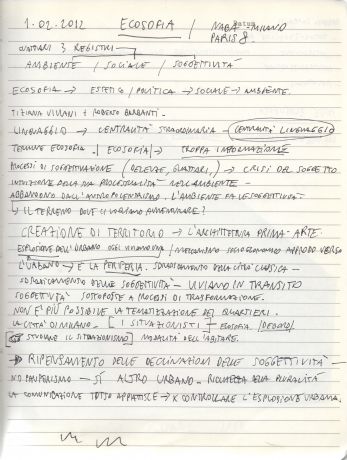 1.02.2012 ECOSOFIA / NABA - MILANO
PARIS 8
GUATTARI 3 REGISTRI
AMBIENTE / SOCIALE / SOGGETTIVITÀ
ECOSOFIA → ESTETICO / POLITICA → SOCIALE → AMBIENTE.
TIZIANA VILLANI + ROBERTO BARBANTI.
LINGUAGGIO → CENTRALITÀ STRAORDINARIA - CENTRALITÀ LINGUAGGIO
TERMINE ECOSOFIA. | ECOSOFIA | → TROPPA INFORMAZIONE
PROCESSI DI SOGGETTIVAZIONE (DELEUZE, GUATTARI,) → CRISI DEL SOGGETTO
PROCESSUALITÀ NELL'AMBIENTE -
ABBANDONO DALL'ANTROPOCENTRISMO. L'AMBIENTE FA LE SOGGETTIVITÀ
IL TERRENO DOVE CI VOGLIAMO AVVENTURARE?
CREAZIONE DI TERRITORIO → L'ARCHITETTURA PRIMA ARTE.
ESPLOSIONE DELL'URBANO OGGI / MECCANISMO SOCIOECONOMICO APPRODO VERSO
L'URBANO → E LA PERIFERIA. SGRETOLAMENTO DELLA CITTÀ CLASSICA -
SGRETOLAMENTO DELLE SOGGETTIVITÀ - VIVIAMO IN TRANSITO
SOGGETTIVITÀ SOTTOPOSTE A PROCESSI DI TRASFORMAZIONE.
NON È PIÙ POSSIBILE LA TEMATIZZAZIONE DEI QUARTIERI.
LA CITTÀ DI MILANO - [I SITUAZIONISTI + ECOSOFIA / DEBORD/
IL SITUAZIONISMO] MODALITÀ DELL'ABITARE.
RIPENSAMENTO DELLE DECLINAZIONI DELLE SOGGETTIVITÀ
NO PAUPERISMO - SÌ ALTRO URBANO - RICCHEZZA DELLA PLURALITÀ
LA COMUNICAZIONE TUTTO APPIATTISCE → X CONTROLLARE L'ESPLOSIONE URBANA.